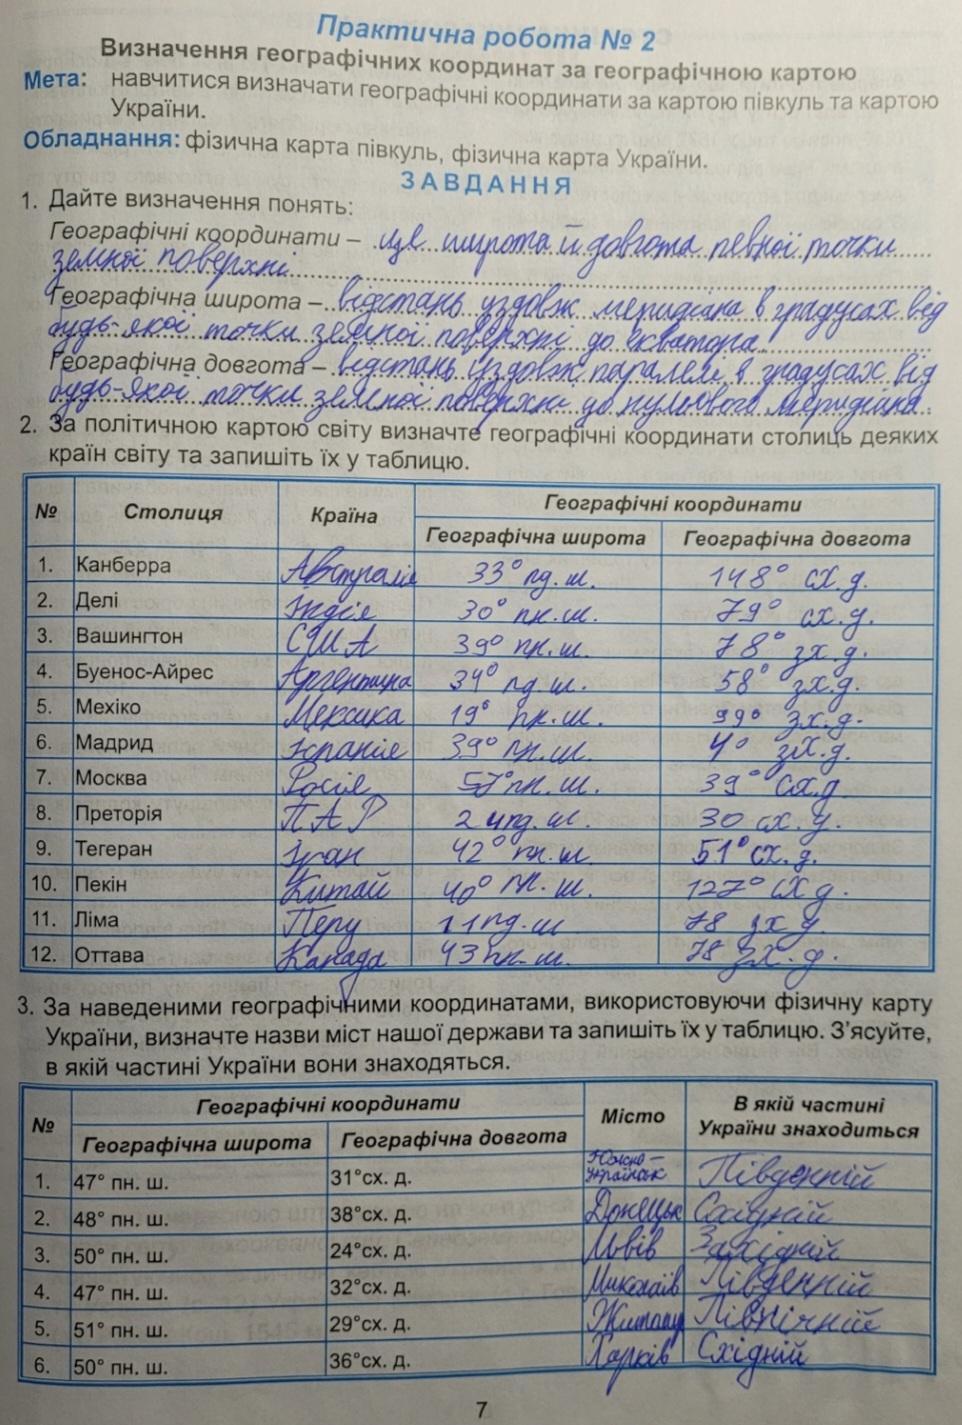 Практична робота № 2
Визначення географічних координат за географічною картою
Мета: навчитися визначати географічні координати за картою півкуль та картою
України.
Обладнання: фізична карта півкуль, фізична карта України.
ЗАВДАННЯ
1. Дайте визначення понять:
Географічні координати – це широта й довгота певної точки
земної поверхні
Географічна широта – відстань уздовж меридіана в градусах від
будь-якої точки земної поверхні до екватора.
Географічна довгота – відстань уздовж паралелі в градусах від
будь-якої точки земної поверхні до нульового меридіана.
2. За політичною картою світу визначте географічні координати столиць деяких
країн світу та запишіть їх у таблицю.
№ Столиця Країна Географічні координати
Географічна широта Географічна довгота
1. Канберра Австралія 33° пд. ш. 148° сх. д.
2. Делі Індія 30° пн. ш. 79° сх. д.
3. Вашингтон США 39° пн. ш. 78° зх. д.
4. Буенос-Айрес Аргентина 34° пд. ш. 58° зх. д.
5. Мехіко Мексика 19° пн. ш. 99° зх. д.
6. Мадрид Іспанія 39° пн. ш. 4° зх. д.
7. Москва Росія 57° пн. ш. 39° сх. д
8. Преторія ПАР 24 пд. ш. 30 сх. д.
9. Тегеран Іран 42° пн. ш. 51° сх. д.
10. Пекін Китай 40° пн. ш. 127° сх д.
11. Ліма Перу 11 пд. ш 78 зх д.
12. Оттава Канада 43 пн. ш. 78 зх. д.
3. За наведеними географічними координатами, використовуючи фізичну карту
України, визначте назви міст нашої держави та запишіть їх у таблицю. З’ясуйте,
в якій частині України вони знаходяться.
№ Географічні координати Місто В якій частині
України знаходиться
Географічна широта Географічна довгота
Южно-
1. 47° пн. ш. 31°сх. д. українськ Південній
2. 48° пн. ш. 38°сх. д. Донецьк Східній
3. 50° пн. ш. 24°сх. д. Львів Західній
4. 47° пн. ш. 32°сх. д. Миколаїв Південній
5. 51° пн. ш. 29°сх. д. Північній
6. 50° пн. ш. 36°сх. д. Харків Східній
7